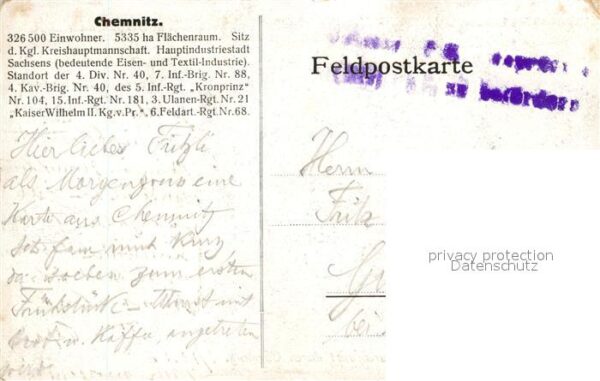 Chemnitz.
326 500 Einwohner. 5335 ha Flächenraum. Sitz
d. Kgl. Kreishauptmannschaft. Hauptindustriestadt
Sachsens (bedeutende Eisen- und Textil-Industrie).
Standort der 4. Div. Nr. 40, 7. Inf.-Brig. Nr. 88,
4. Kav.-Brig. Nr. 40, des 5. Inf.-Rgt. „Kronprinz"
Nr. 104, 15. Inf.-Rgt. Nr. 181, 3. Ulanen-Rgt. Nr. 21
„Kaiser Wilhelm II. Kg. v. Pr.", 6. Feldart.-Rgt. Nr. 68.
Feldpostkarte
befördern
Hier liebes Fritzli
als Morgengruss eine
Karte aus Chemnitz
kurz
soeben zum ersten
Frühstück
Brot u. Kaffee, angetreten
Herrn
Fritz
bei
privacy protection
Datenschutz